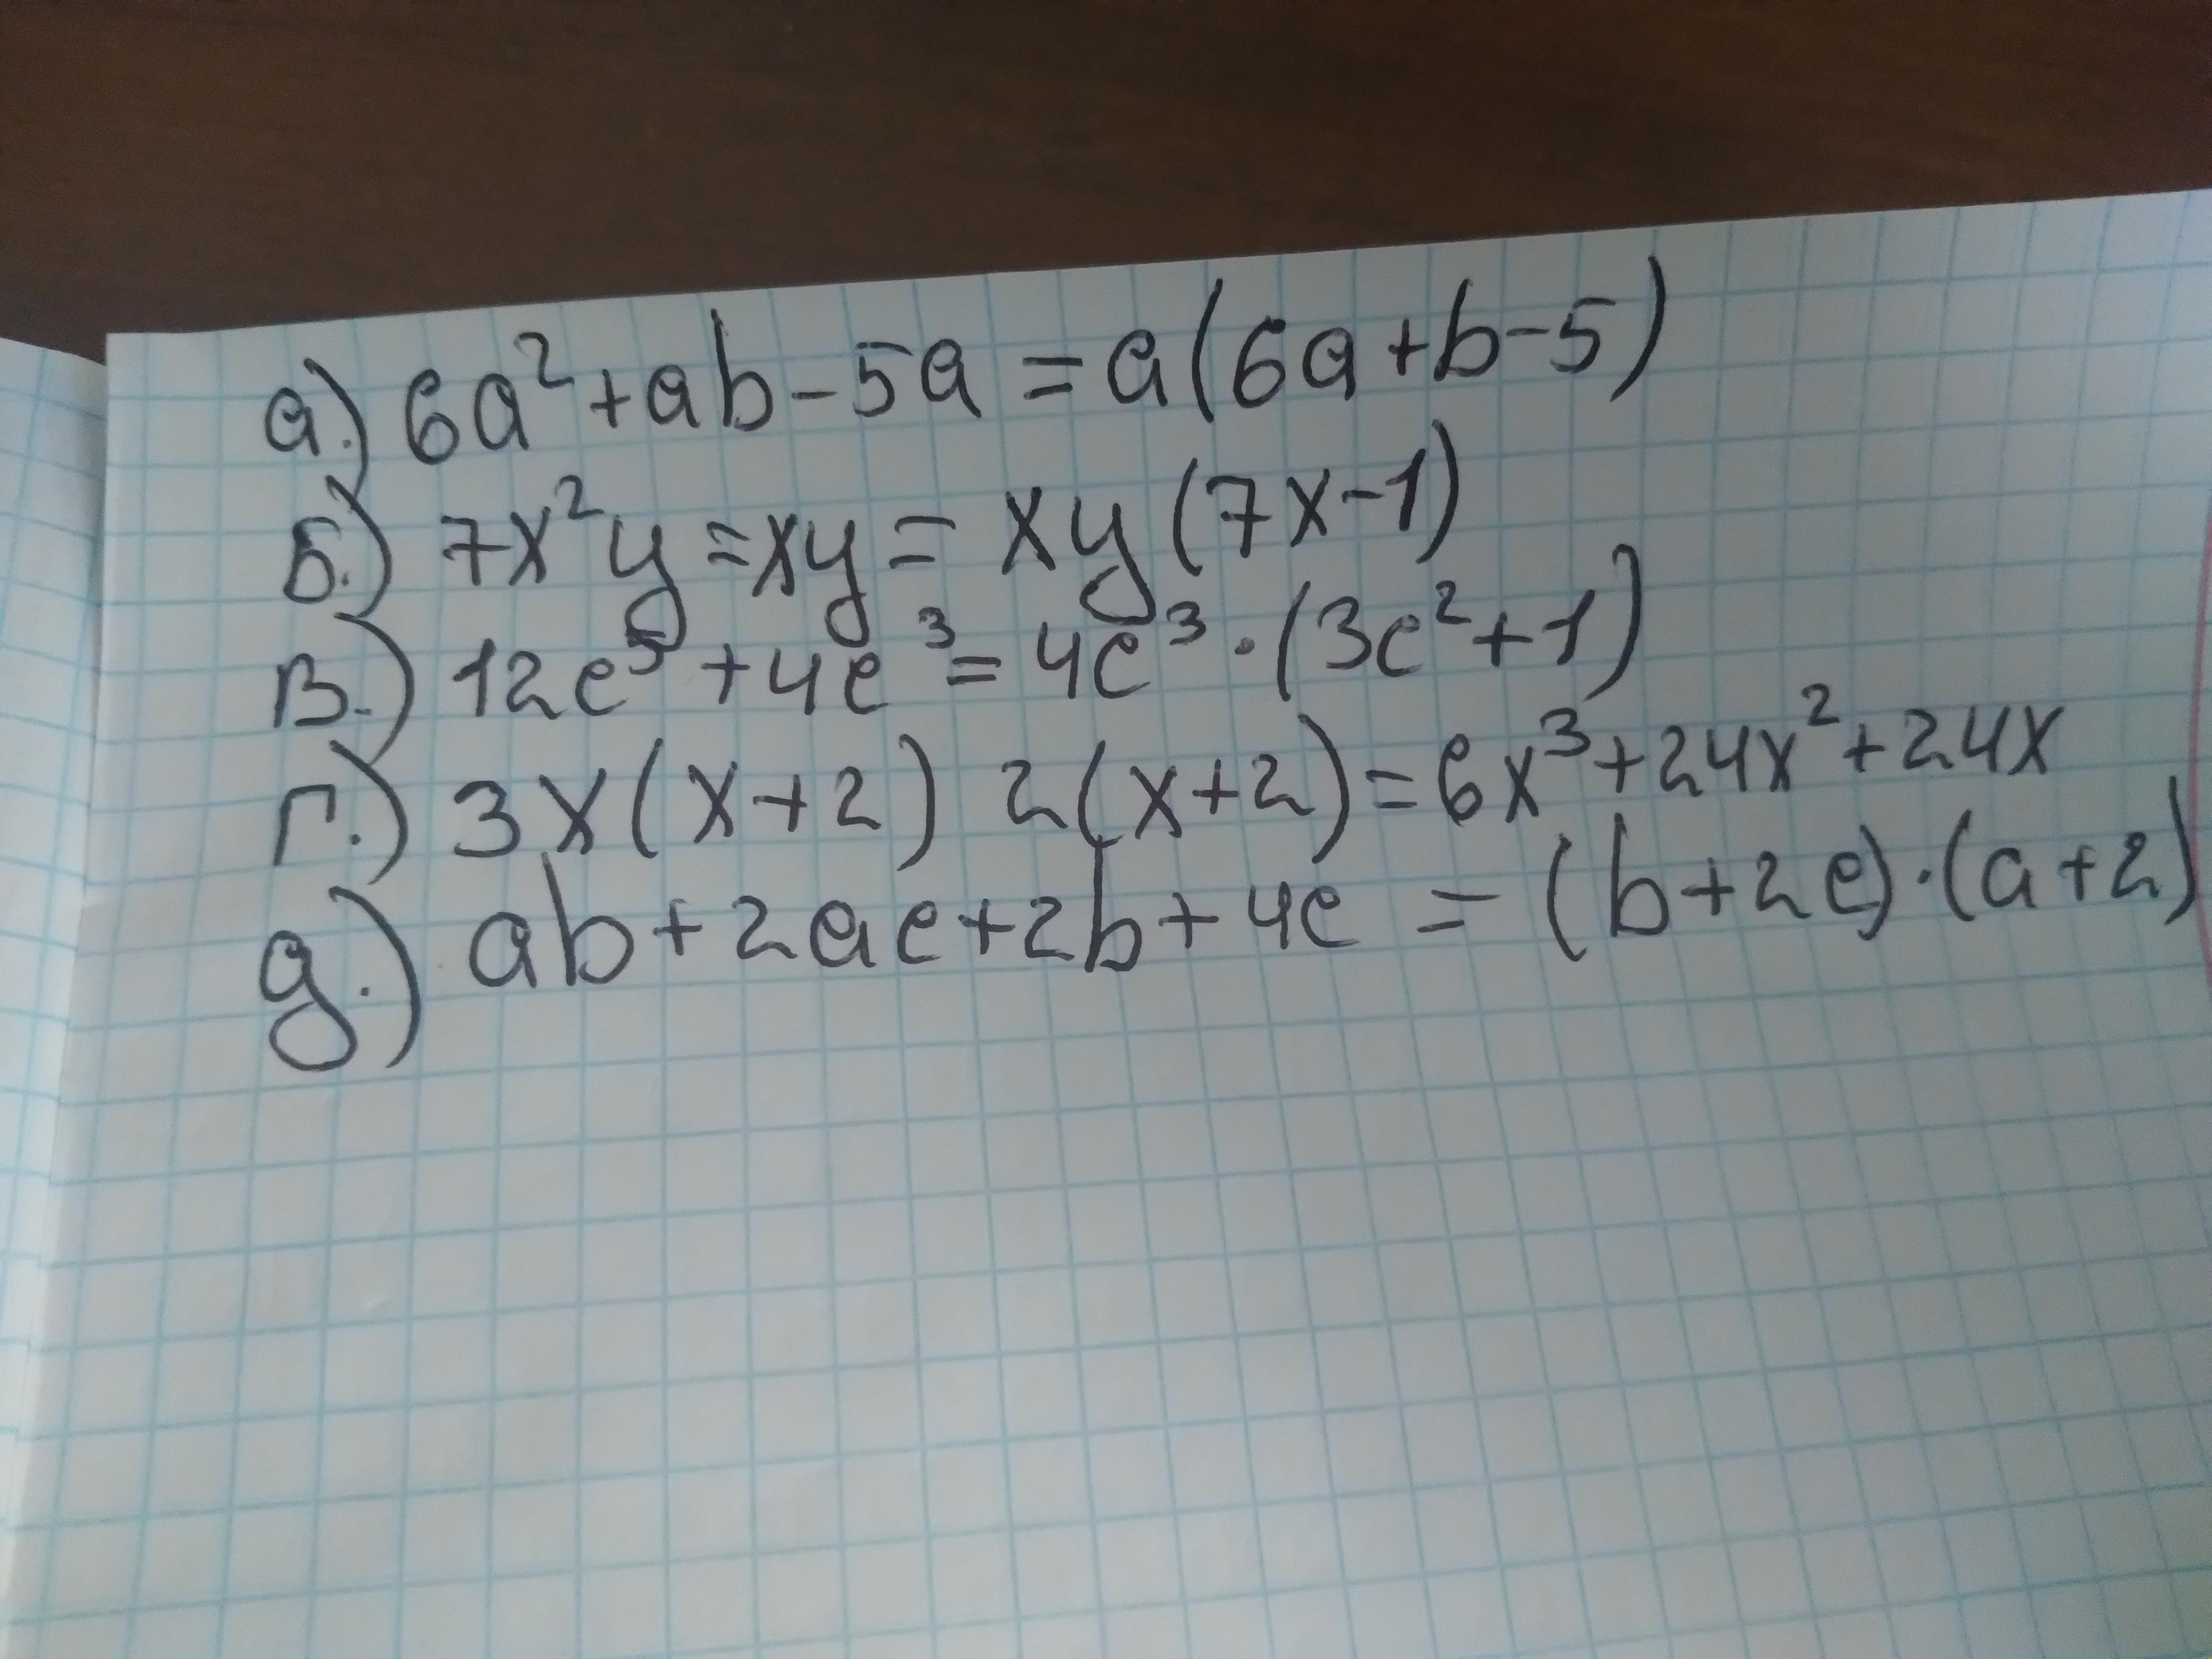 а.) 6a²+ab-5a=a(6a+b-5)
Б.) 7x²y=xy=xy(7x-1)
В.) 12c⁵+4c³=4c³·(3c²+1)
Г.) 3x(x+2) 2(x+2)=6x³+24x²+24x
д.) ab+2ac+2b+4c=(b+2c)·(a+2)